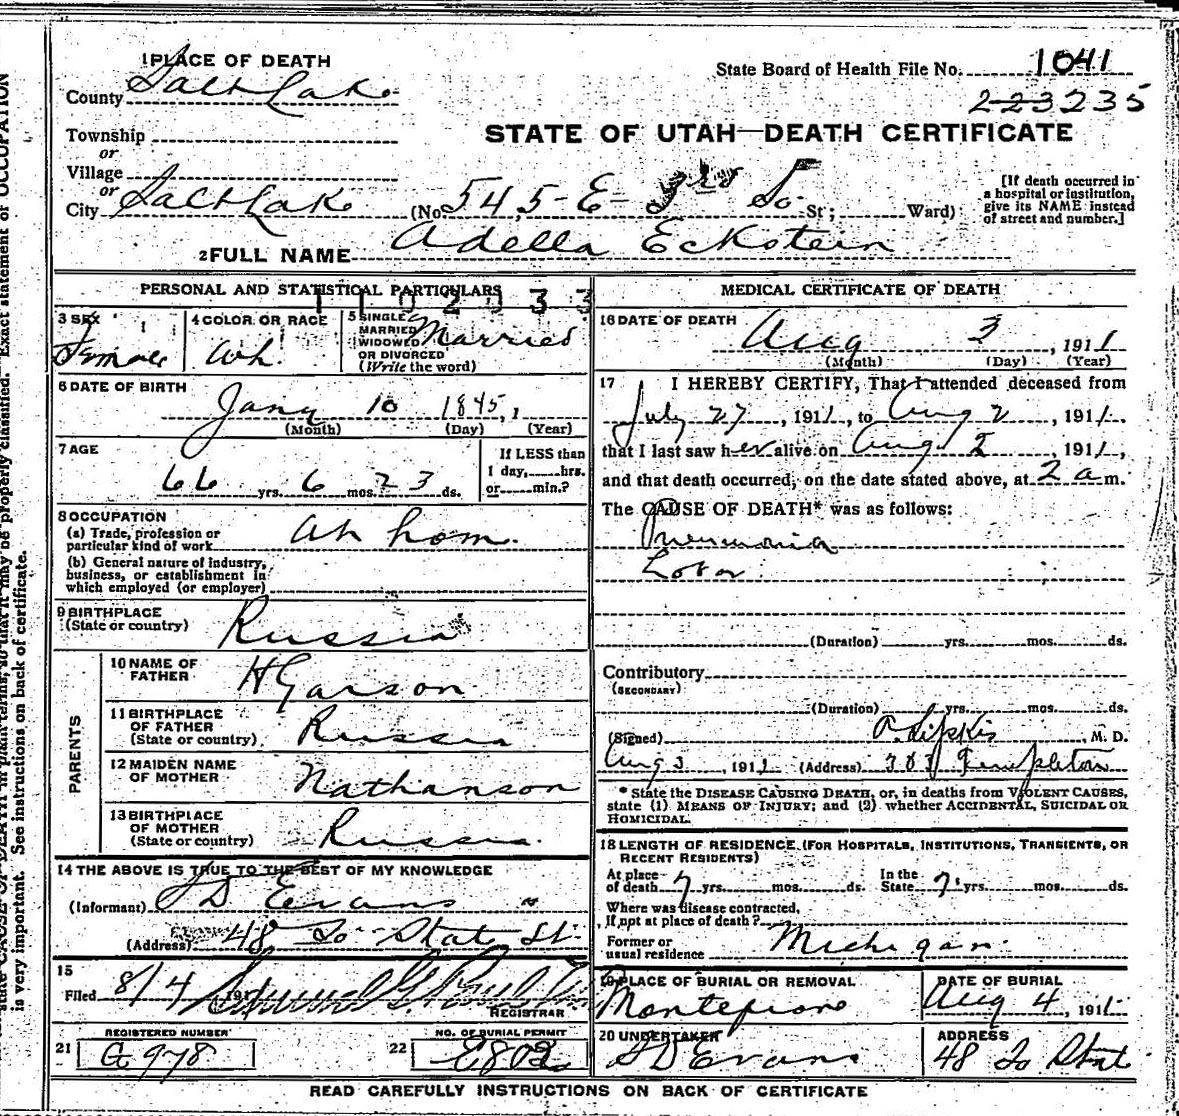 1 PLACE OF DEATH
State Board of Health File No. 1041
County Salt Lake
223235
Township
STATE OF UTAH—DEATH CERTIFICATE
or
Village
or
City Salt Lake (No. 545 E 3rd So. St; Ward)
[If death occurred in a hospital or institution, give its NAME instead of street and number.]
2 FULL NAME Adella Eckstein
PERSONAL AND STATISTICAL PARTICULARS
1102033
3 SEX Female
4 COLOR OR RACE Wh.
5 SINGLE MARRIED WIDOWED OR DIVORCED (Write the word) Married
6 DATE OF BIRTH
Jany 10 1845, 1
(Month) (Day) (Year)
7 AGE
66 yrs. 6 mos. 23 ds.
If LESS than 1 day, hrs. or min.?
8 OCCUPATION
(a) Trade, profession or particular kind of work At hom.
(b) General nature of industry, business, or establishment in which employed (or employer)
9 BIRTHPLACE
(State or country) Russia
PARENTS
10 NAME OF FATHER H Garson
11 BIRTHPLACE OF FATHER (State or country) Russia
12 MAIDEN NAME OF MOTHER Nathanson
13 BIRTHPLACE OF MOTHER (State or country) Russia.
14 THE ABOVE IS TRUE TO THE BEST OF MY KNOWLEDGE
(Informant) S D Evans
(Address) 48 So State St
15
Filed 8/4 191
REGISTRAR
REGISTERED NUMBER
21 G978
NO. OF BURIAL PERMIT
22 E802
MEDICAL CERTIFICATE OF DEATH
16 DATE OF DEATH
Aug 3, 1911
(Month) (Day) (Year)
17 I HEREBY CERTIFY, That I attended deceased from
July 27, 1911, to Aug 2, 1911.
that I last saw her alive on Aug 2, 1911,
and that death occurred, on the date stated above, at 2 a m.
The CAUSE OF DEATH* was as follows:
Pneumonia
Lobar
(Duration) yrs. mos. ds.
Contributory
(SECONDARY)
(Duration) yrs. mos. ds.
(Signed) Lipkis, M. D.
Aug 3, 1911 (Address) Templeton
* State the DISEASE CAUSING DEATH, or, in deaths from VIOLENT CAUSES,
state (1) MEANS OF INJURY; and (2) whether ACCIDENTAL, SUICIDAL OR
HOMICIDAL.
18 LENGTH OF RESIDENCE (FOR HOSPITALS, INSTITUTIONS, TRANSIENTS, OR
RECENT RESIDENTS)
At place of death 7 yrs. mos. ds. In the State 7 yrs. mos. ds.
Where was disease contracted,
If not at place of death?
Former or usual residence Michigan
19 PLACE OF BURIAL OR REMOVAL
Montefiore
DATE OF BURIAL
Aug 4, 1911
20 UNDERTAKER
S D Evans
ADDRESS
48 So State
READ CAREFULLY INSTRUCTIONS ON BACK OF CERTIFICATE
state CAUSE OF DEATH in plain terms, so that it may be properly classified. Exact statement of OCCUPATION
is very important. See instructions on back of certificate.